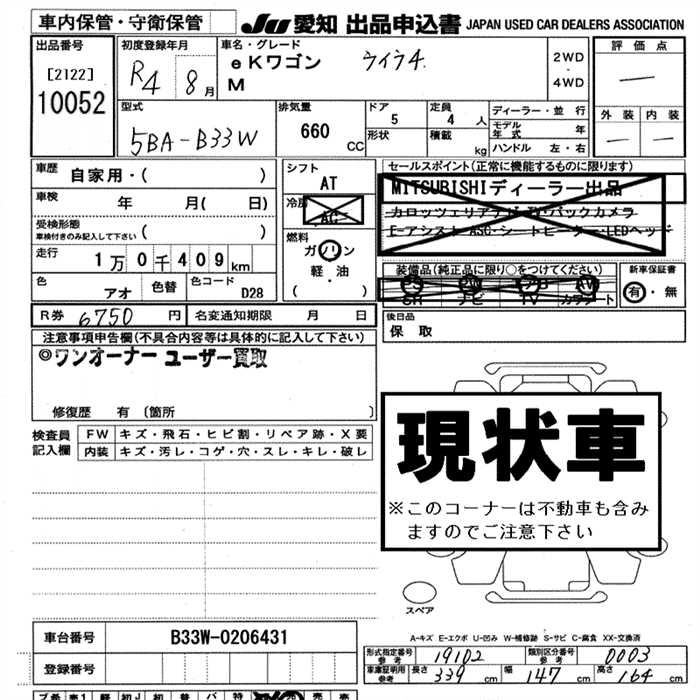 車内保管・守衛保管 JU 愛知 出品申込書 JAPAN USED CAR DEALERS ASSOCIATION
出品番号 [2122] 10052
初度登録年月 R4 8月
車名・グレード eKワゴン ライラ4.
M
2WD ・ 4WD
評価点 —
外装 内装
— —
型式 5BA-B33W
排気量 660 CC
ドア 5 定員 4 人
形状 積載 kg
ディーラー・並行
モデル年式 年
ハンドル 左・右
車歴 自家用・( )
車検 年 月( 日)
受検形態
車検付きのみ記入して下さい ( )
走行 1万0千409km
色 アオ 色替 色コード D28
シフト AT
冷房 AC
燃料 ガソリン
軽・油
( )
セールスポイント(正常に機能するものに限ります)
MITSUBISHIディーラー出品
カロッツェリアナビ・TV・バックカメラ
E-アシスト・ASC・シートヒーター・LEDヘッド
装備品(純正品に限り○をつけてください)
PS PW AB AW
SR ナビ TV カラアート
新車保証書
有・無
R券 6750 円 名変通知期限 月 日
後日品
保 取
注意事項申告欄(不具合内容等は具体的に記入して下さい)
◎ワンオーナー ユーザー買取
修復歴 有 〔箇所 〕
検査員記入欄 FW キズ・飛石・ヒビ割・リペア跡・X要
内装 キズ・汚レ・コゲ・穴・スレ・キレ・破レ
現状車
※このコーナーは不動車も含み
ますのでご注意下さい
スペア
A-キズ E-エクボ U-凹み W-補修跡 S-サビ C-腐食 XX-交換済
車台番号 B33W-0206431
登録番号
形式指定番号 参考 19102 類別区分番号 参考 0003
車庫証明用 参考 長さ 339 cm 幅 147 cm 高さ 164 cm